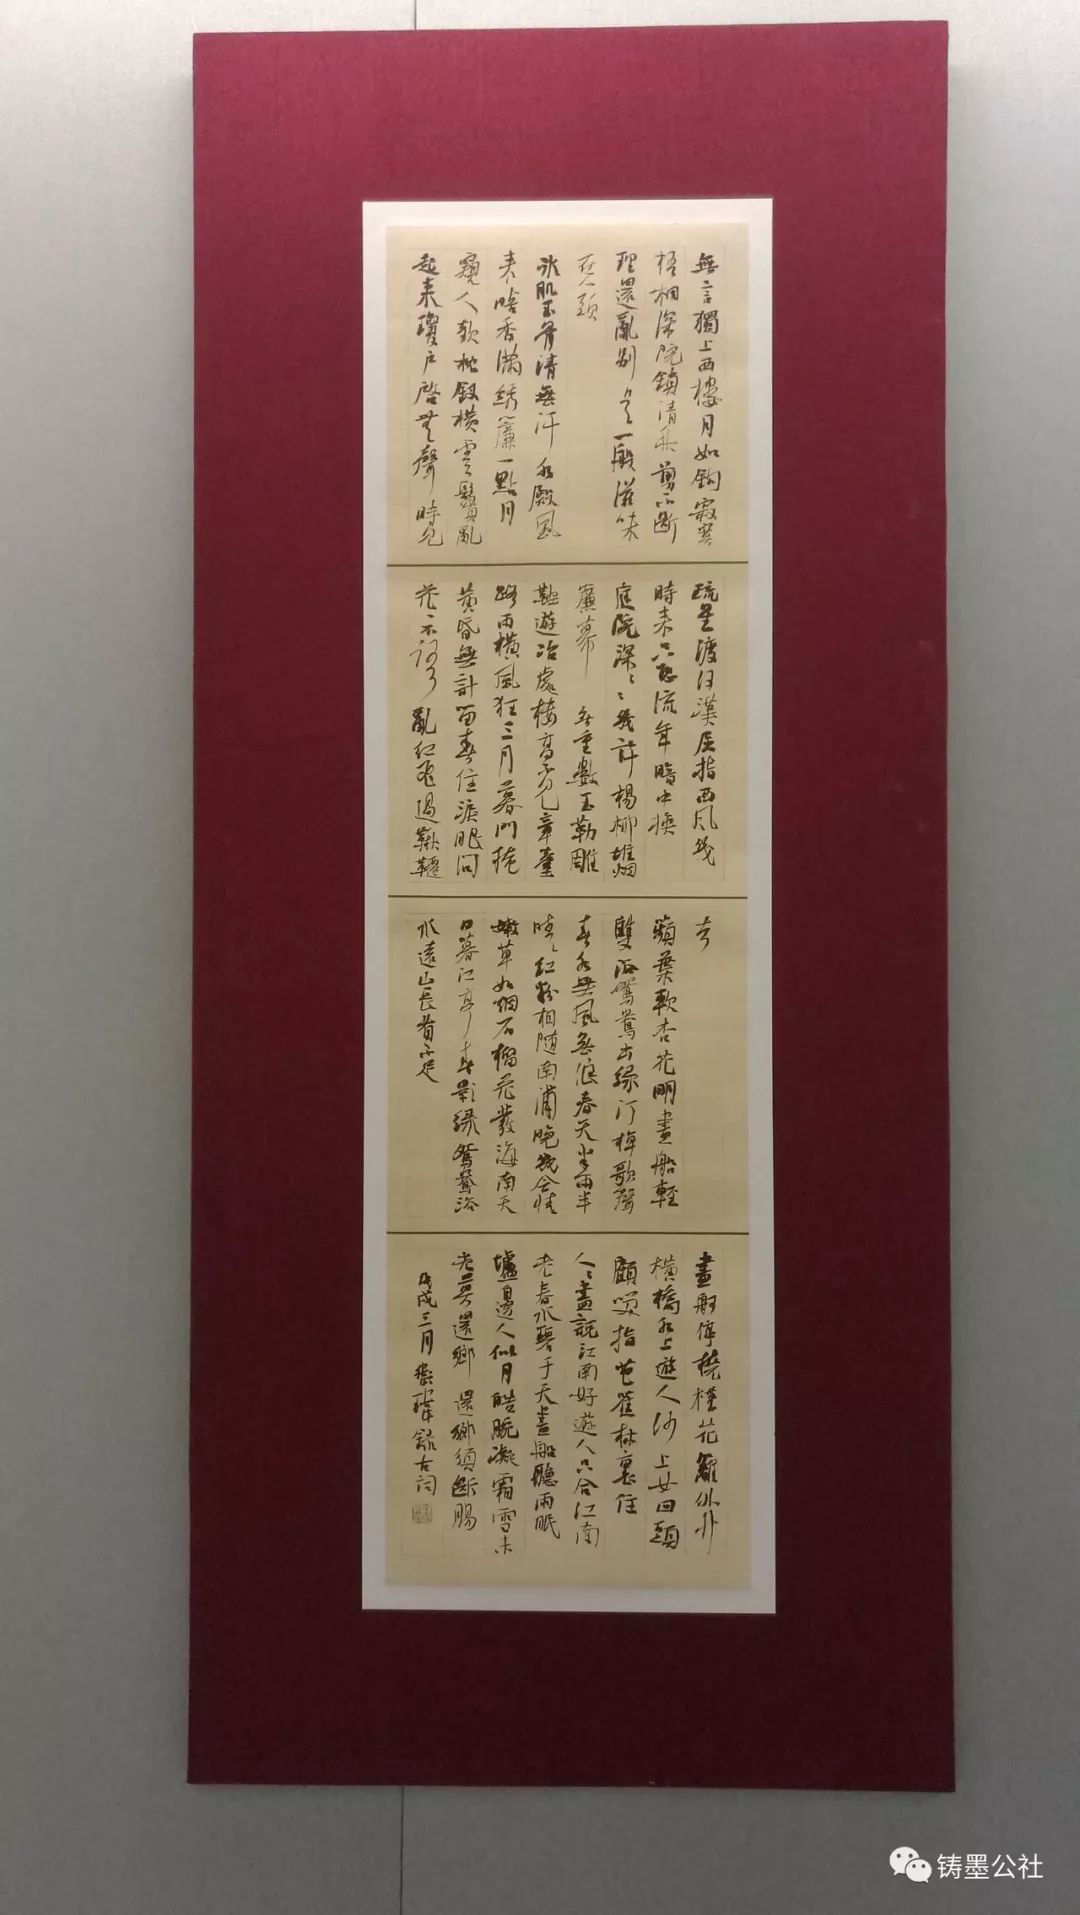 無言獨上西樓月如鉤寂寞
梧桐深院鎖清秋剪不斷
理還亂別是一般滋味
在心頭
冰肌玉骨清無汗水殿風
來暗香滿繡簾一點月
窺人欹枕釵橫雲鬢亂
起來瓊戶啓無聲時見
疏星渡河漢屈指西風幾
時來只恐流年暗中換
庭院深深幾許楊柳堆烟
簾幕無重數玉勒雕
鞍遊冶處樓高不見章臺
路雨橫風狂三月暮門掩
黃昏無計留春住淚眼問
花花不語亂紅飛過鞦韆
去
蘋葉軟杏花明畫船輕
雙浴鴛鴦出綠汀棹歌聲
春水無風無浪春天半雨半
晴紅粉相隨南浦晚幾含情
嫩草如烟石榴花發海南天
日暮江亭春影綠鴛鴦浴
水遠山長看不足
畫舸停橈槿花籬外竹
橫橋水上遊人沙上女回頭
顧笑指芭蕉林裏住
人人盡說江南好遊人只合江南
老春水碧于天畫船聽雨眠
壚邊人似月皓腕凝霜雪未
老莫還鄉還鄉須斷腸
戊戌三月錄古詞
铸墨公社